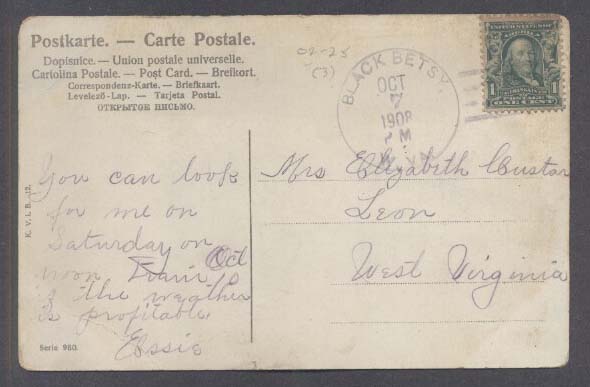 Postkarte. — Carte Postale.
Dopisnice. — Union postale universelle.
Cartolina Postale. — Post Card. — Brefkort.
Correspondenz-Karte. — Briefkaart.
Levelező-Lap. — Tarjeta Postal.
ОТКРЫТОЕ ПИСЬМО.
02-25
(3)
BLACK BETSY,
OCT
7
1908
M
W.VA.
1
ONE CENT
1
Mrs Elizabeth Custar
Leon
West Virginia
You can look
for me on
Saturday on
noon Train Oct 10
if the weather
is profitable
Essie
K. V. i. B. 12.
Serie 980.